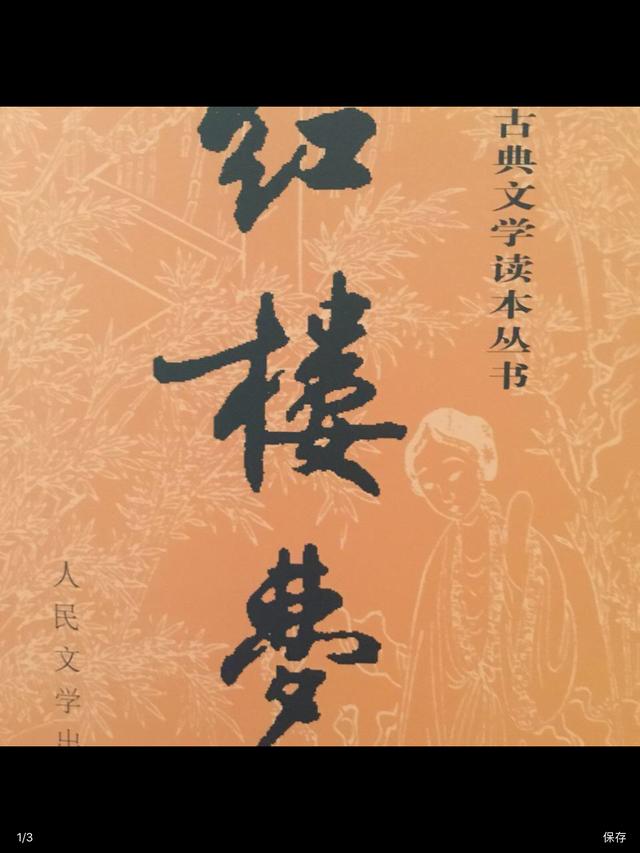 古典文学读本丛书
红楼梦
人民文学出
1/3
保存